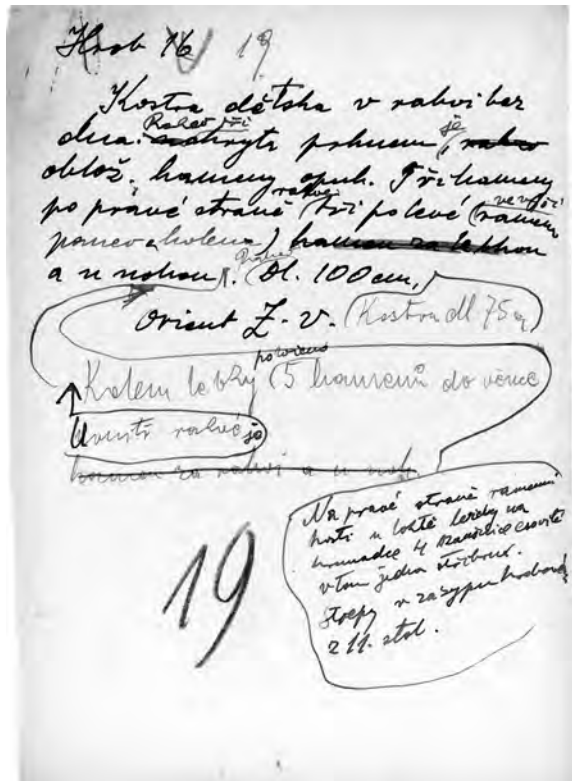 Hrob 16 19
Kostra dětska v rakvi bez
dna. Rakev při
prknem je
oblož. kameny opuk. Tři kameny
po pravé straně rakve tři po levé (ve výši
ramen
panev a kolena) kamen za lebkou
a u nohou. Dl. 100 cm,
orient Z-V. (Kostra dl 75 cm)
Kolem lebky položeno 5 kamenů do věnce
Uvnitř rakve je
kamen za rakvi a u noh.
Na pravé straně ramenní
kosti u loktě ležely na
hromadce 4 esovité
v tom jedna
střepy v zasypu hrobové
z 11. stol.
19